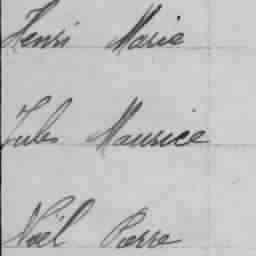 Henri Marie
Jules Maurice
Noël Pierre